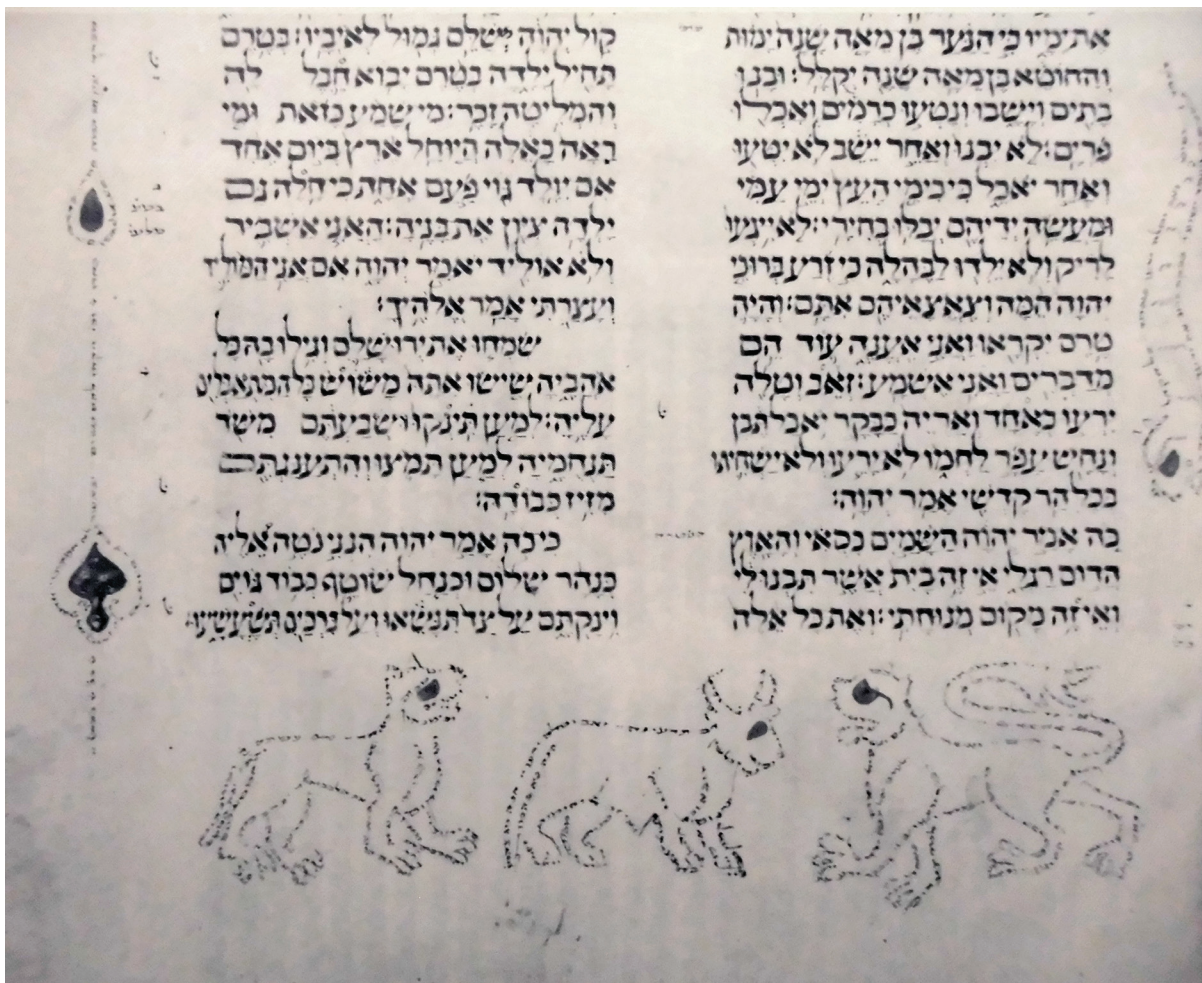 את ימיו כי הנער בן מאה שנה ימות
והחוטא בן מאה שנה יקלל׃ ובנו
בתים וישבו ונטעו כרמים ואכלו
פרים׃ לא יבנו ואחר ישב לא יטעו
ואחר יאכל כי כימי העץ ימי עמי
ומעשה ידיהם יבלו בחירי׃ לא ייגעו
לריק ולא ילדו לבהלה כי זרע ברוכי
יהוה המה וצאצאיהם אתם׃ והיה
טרם יקראו ואני אענה עוד הם
מדברים ואני אשמע׃ זאב וטלה
ירעו כאחד ואריה כבקר יאכל תבן
ונחש עפר לחמו לא ירעו ולא ישחיתו
בכל הר קדשי אמר יהוה׃
כה אמר יהוה השמים כסאי והארץ
הדום רגלי אי זה בית אשר תבנו לי
ואי זה מקום מנוחתי׃ ואת כל אלה
קול יהוה משלם גמול לאיביו׃ בטרם
תחיל ילדה בטרם יבוא חבל לה
והמליטה זכר׃ מי שמע כזאת ומי
ראה כאלה היוחל ארץ ביום אחד
אם יולד גוי פעם אחת כי חלה גם
ילדה ציון את בניה׃ האני אשביר
ולא אוליד יאמר יהוה אם אני המוליד
ועצרתי אמר אלהיך׃
שמחו את ירושלם וגילו בה כל
אהביה שישו אתה משוש כל המתאבלים
עליה׃ למען תינקו ושבעתם משד
תנחמיה למען תמצו והתענגתם
מזיז כבודה׃
כי כה אמר יהוה הנני נטה אליה
כנהר שלום וכנחל שוטף כבוד גוים
וינקתם על צד תנשאו ועל ברכים תשעשעו